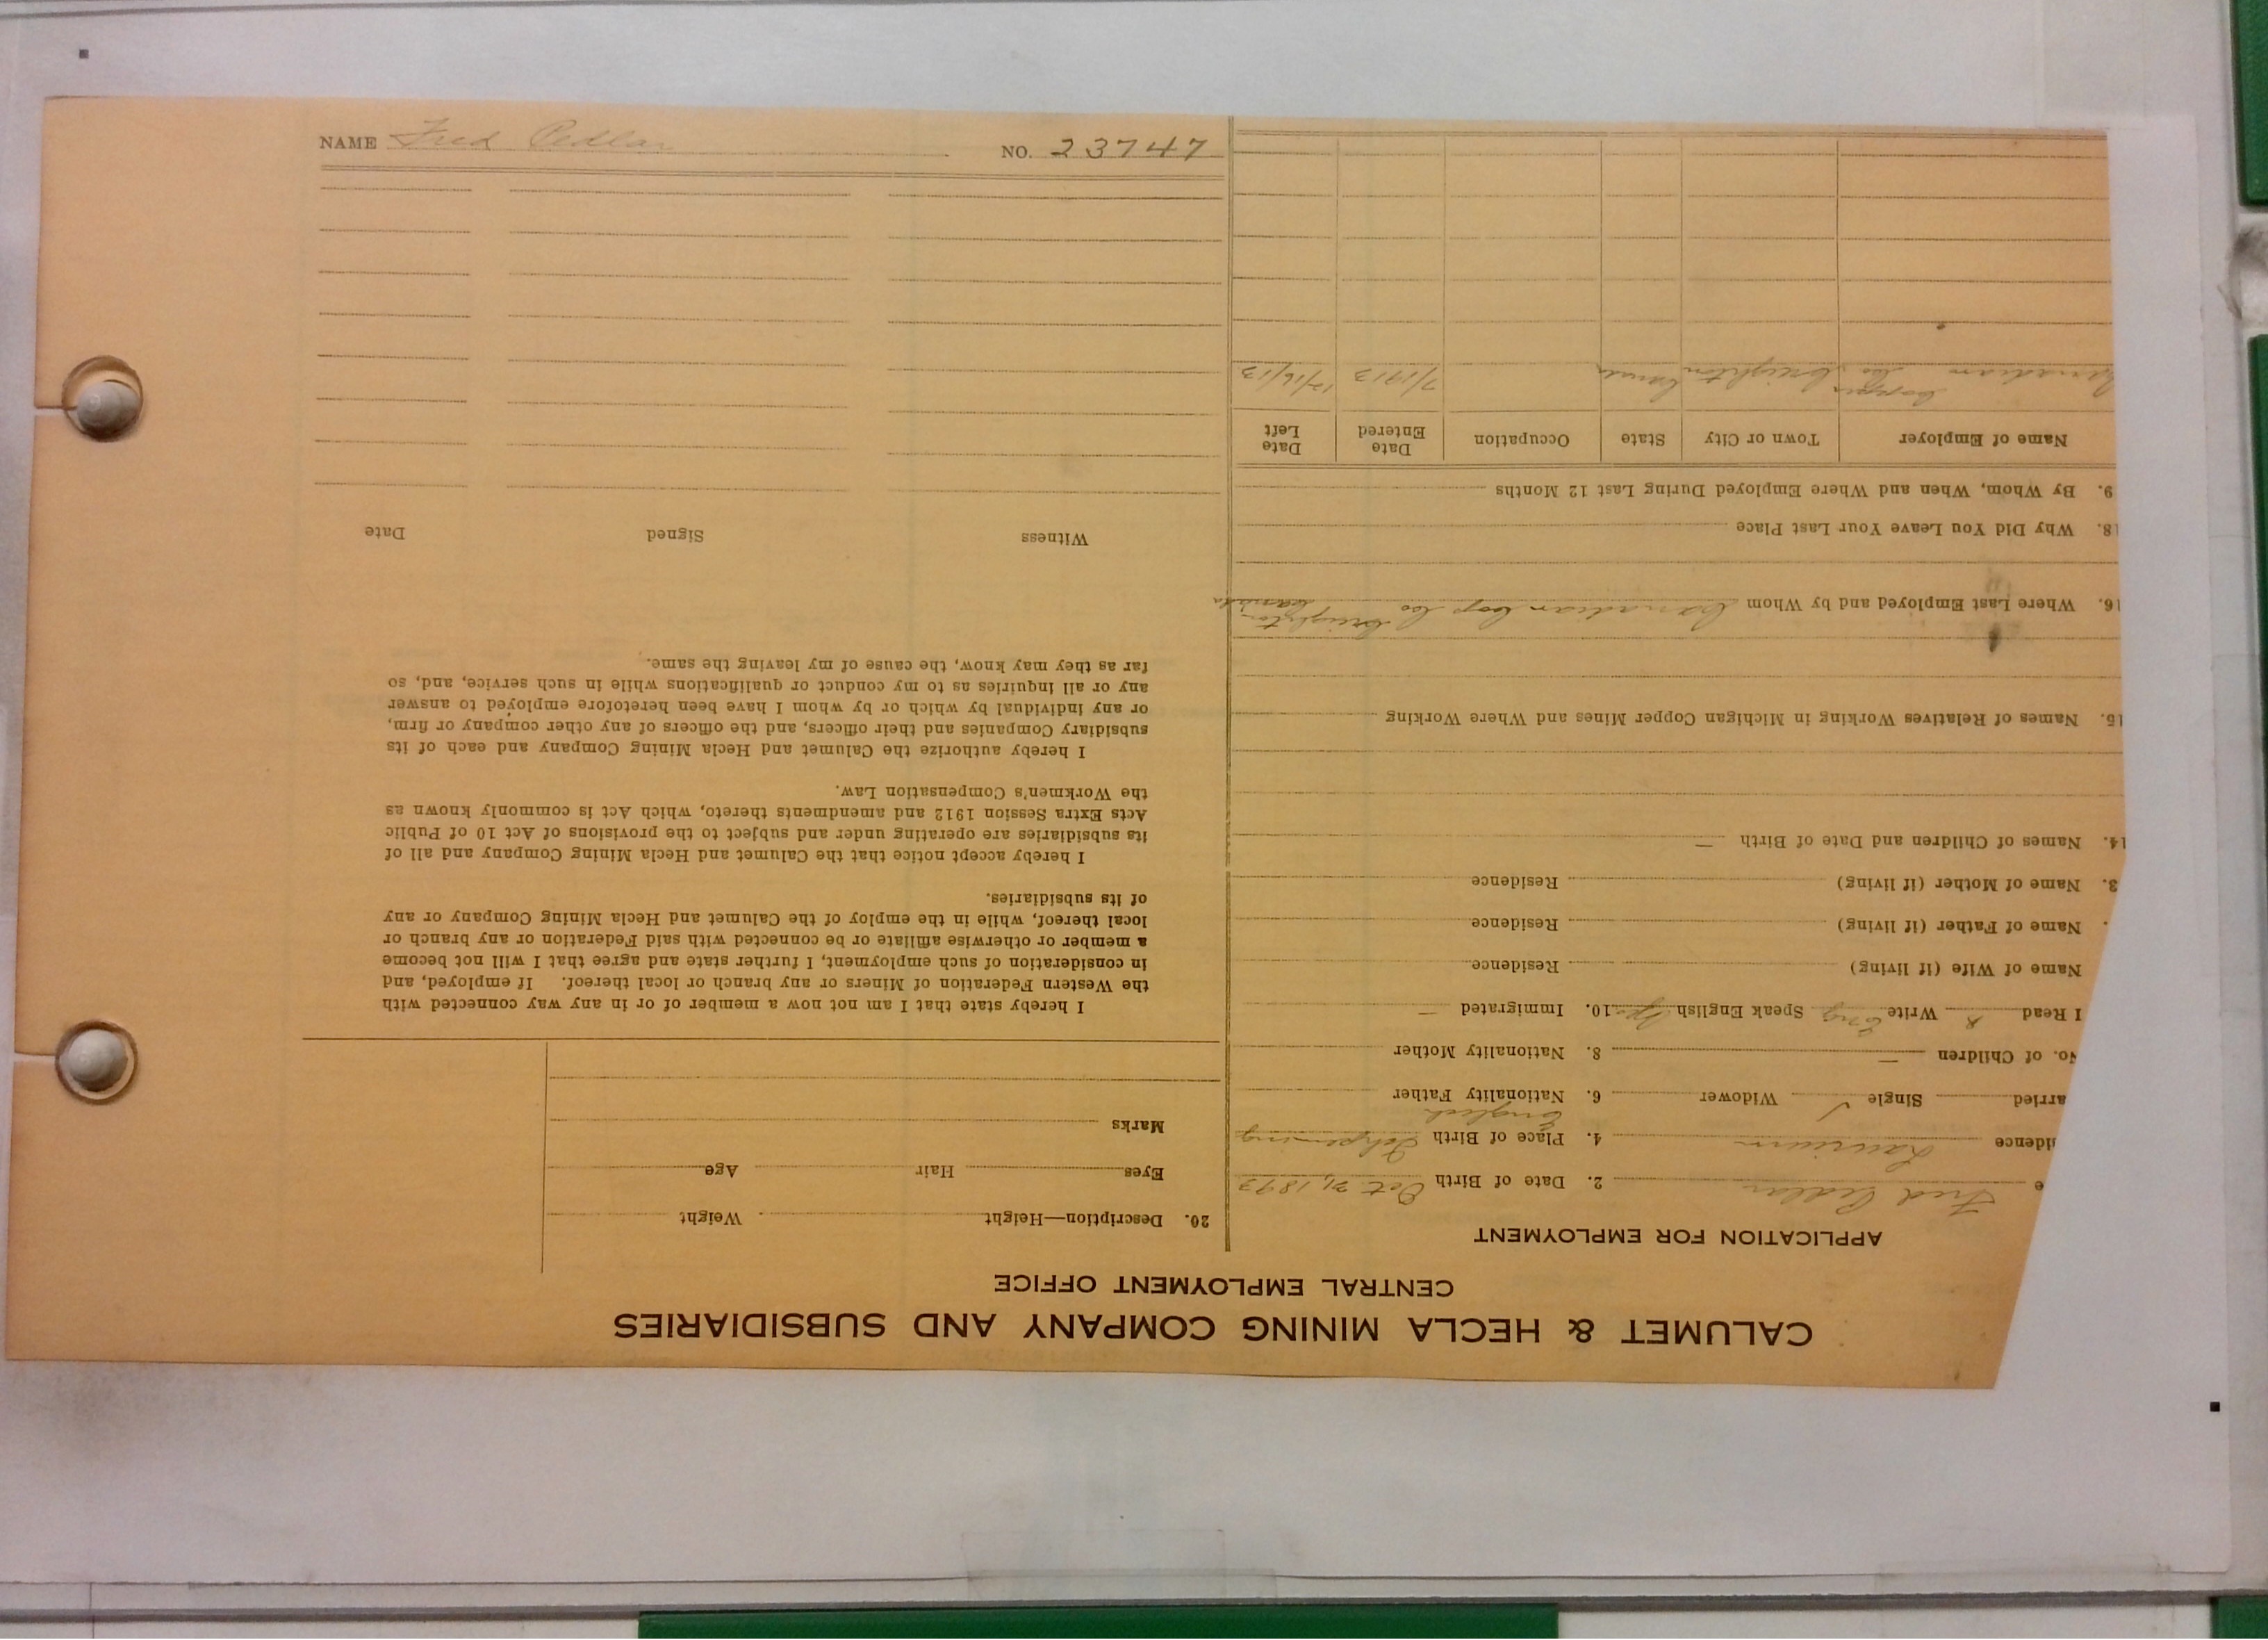 CALUMET & HECLA MINING COMPANY AND SUBSIDIARIES
CENTRAL EMPLOYMENT OFFICE
APPLICATION FOR EMPLOYMENT
e Fred Pedlar 2. Date of Birth Oct 21, 1893
idence Laurium 4. Place of Birth Ishpeming
English
arried Single ✓ Widower 6. Nationality Father
No. of Children — 8. Nationality Mother
I Read & Write Eng Speak English 10. Immigrated —
Name of Wife (if living) Residence
. Name of Father (if living) Residence
3. Name of Mother (if living) Residence
14. Names of Children and Date of Birth —
15. Names of Relatives Working in Michigan Copper Mines and Where Working
16. Where Last Employed and by Whom Canadian Cop Co Creighton Canada
18. Why Did You Leave Your Last Place
9. By Whom, When and Where Employed During Last 12 Months
Name of Employer Town or City State Occupation Date Entered Date Left
Canadian Copper Co Creighton Canada 7/1913 12/16/13
20. Description—Height Weight
Eyes Hair Age
Marks
I hereby state that I am not now a member of or in any way connected with
the Western Federation of Miners or any branch or local thereof. If employed, and
in consideration of such employment, I further state and agree that I will not become
a member or otherwise affiliate or be connected with said Federation or any branch or
local thereof, while in the employ of the Calumet and Hecla Mining Company or any
of its subsidiaries.
I hereby accept notice that the Calumet and Hecla Mining Company and all of
its subsidiaries are operating under and subject to the provisions of Act 10 of Public
Acts Extra Session 1912 and amendments thereto, which Act is commonly known as
the Workmen's Compensation Law.
I hereby authorize the Calumet and Hecla Mining Company and each of its
subsidiary Companies and their officers, and the officers of any other company or firm,
or any individual by which or by whom I have been heretofore employed to answer
any or all inquiries as to my conduct or qualifications while in such service, and, so
far as they may know, the cause of my leaving the same.
Witness Signed Date
NAME Fred Pedlar NO. 23747